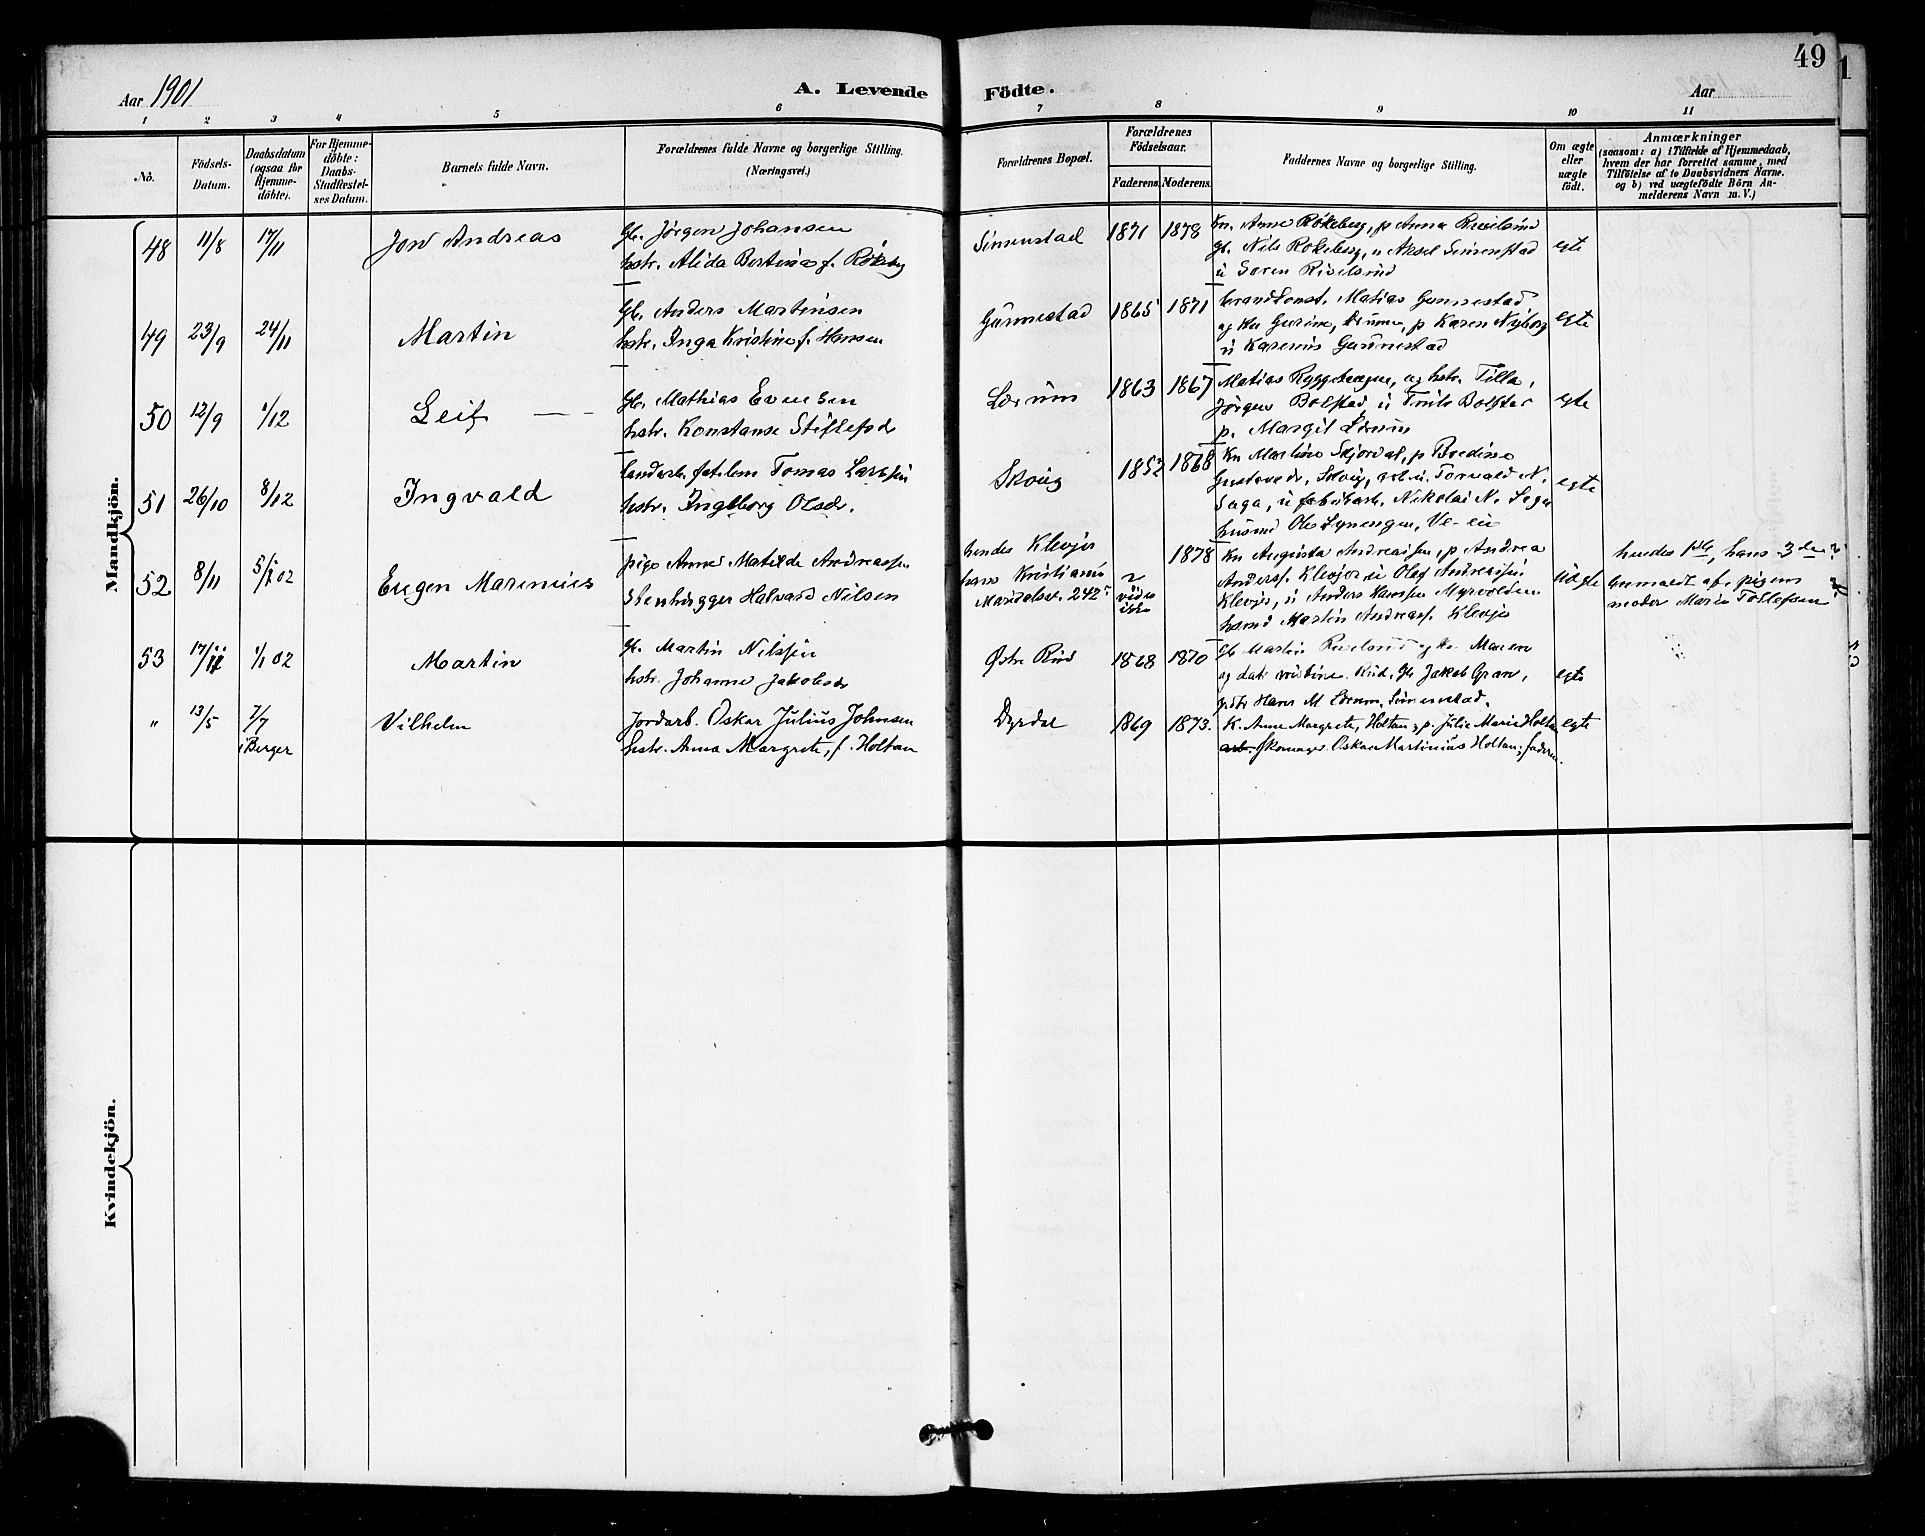 49
Aar 1901
A. Levende Födte.
Aar
1 2 3 4 5 6 7 8 9 10 11
No.
Födsels-Datum.
Daabsdatum (ogsaa for Hjemme-döbte).
For Hjemme-döbte: Daabs-Stadfæstel-ses Datum.
Barnets fulde Navn.
Forældrenes fulde Navne og borgerlige Stilling.
(Næringsvei.)
Forældrenes Bopæl.
Forældrenes Födselsaar.
Faderens. Moderens.
Faddernes Navne og borgerlige Stilling.
Om ægte eller uægte födt.
Anmærkninger
(saasom: a) i Tilfælde af Hjemmedaab,
hvem der har forrettet samme, med
Tilföielse af to Daabsvidners Navne.
og b) ved uægtefödte Börn An-
melderens Navn m. V.)
Mandkjön.
48 11/8 17/11 Jon Andreas
Gb. Jørgen Johansen
hstr. Alida Bertine f. Røkeberg
Simenstad 1871 1878
Kn. Anne Rökeberg, p Anna
gl. Nils Rokeberg, u Aksel Simenstad
u Soren
egte
49 23/9 24/11 Martin
Gb. Anders Martinsen
hstr. Inga Kristine f. Hansen
Gunnestad 1865 1871
Matias Gunnestad
og kn Gurine, p Karen Nyborg
u Karenius Gunnestad
egte
50 12/9 1/12 Leif
Gb. Mathias Evensen
hstr. Konstanse
Lørum 1863 1867
Matias og hstr. Tilla,
Jörgen Bolstad, u Bolstad
p. Margit Lørum
egte
51 26/10 8/12 Ingvald
Tomas Larssen
hstr. Ingeborg Olsdr.
Skoug 1852 1868
Kn Martine p Bredine
Skoug, Torvald N.
Saga, u fabrikarb. Nikolai N. Saga
husmd Ole
egte
52 8/11 5/1 02 Eugen Marinius
pige Anne Matilde Andreassen
Stenhugger Halvard Nilsen
hendes Klevjer
hans Kristiania
Maridalsv. 242
vides ikke 1878
Kn Augusta Andreassen, p Andrea
Anderss. Klevjer u Olaf Andreassen
Klevjer, u Anders Hanssen
husmd Martin Andreass. Klevjer
Uægte
hendes 1ste, hans 3die?
anmeldt af pigens
moder Marie Tollefsen
53 17/11 1/1 02 Martin
Gb. Martin Nilssen
hstr. Johanne Jakobsdr
Østre Rud 1868 1870
Gb Martin Maren
Rud, Gb Jakob Gran,
Hans M Lørum, Simenstad.
egte
" 13/5 7/7 i Berger Vilhelm
Jordarb. Oskar Julius Johnsen
hstr. Anna Margrete, f. Holtan
Dyrdal 1869 1873.
K. Anne Margrete, Holtan, p. Julie Marie Holtan
arb. Skomager Oskar Martinius Holtan; faderen.
egte
Kvindekjön.